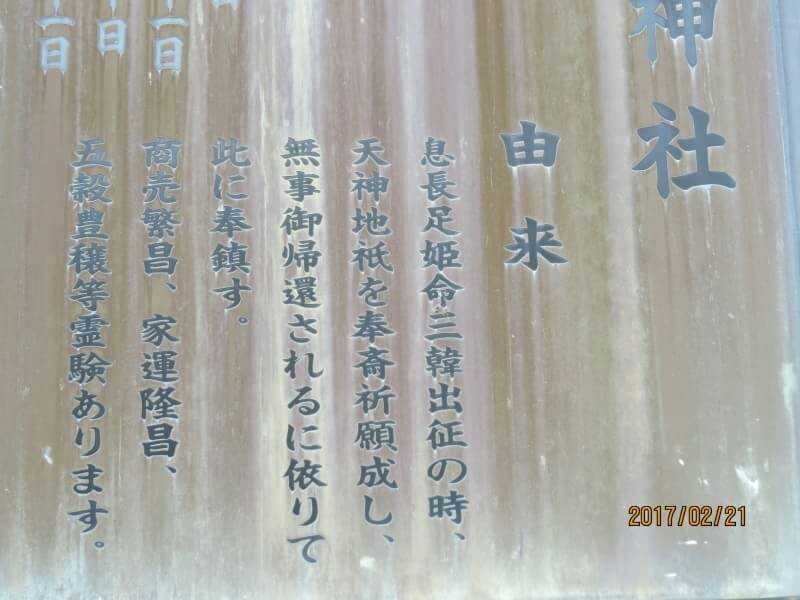 神社
由来
息長足姫命三韓出征の時、
天神地祇を奉斎祈願成し、
無事御帰還されるに依りて
此に奉鎮す。
商売繁昌、家運隆昌、
五穀豊穣等霊験あります。
十一日
十日
十一日
2017/02/21